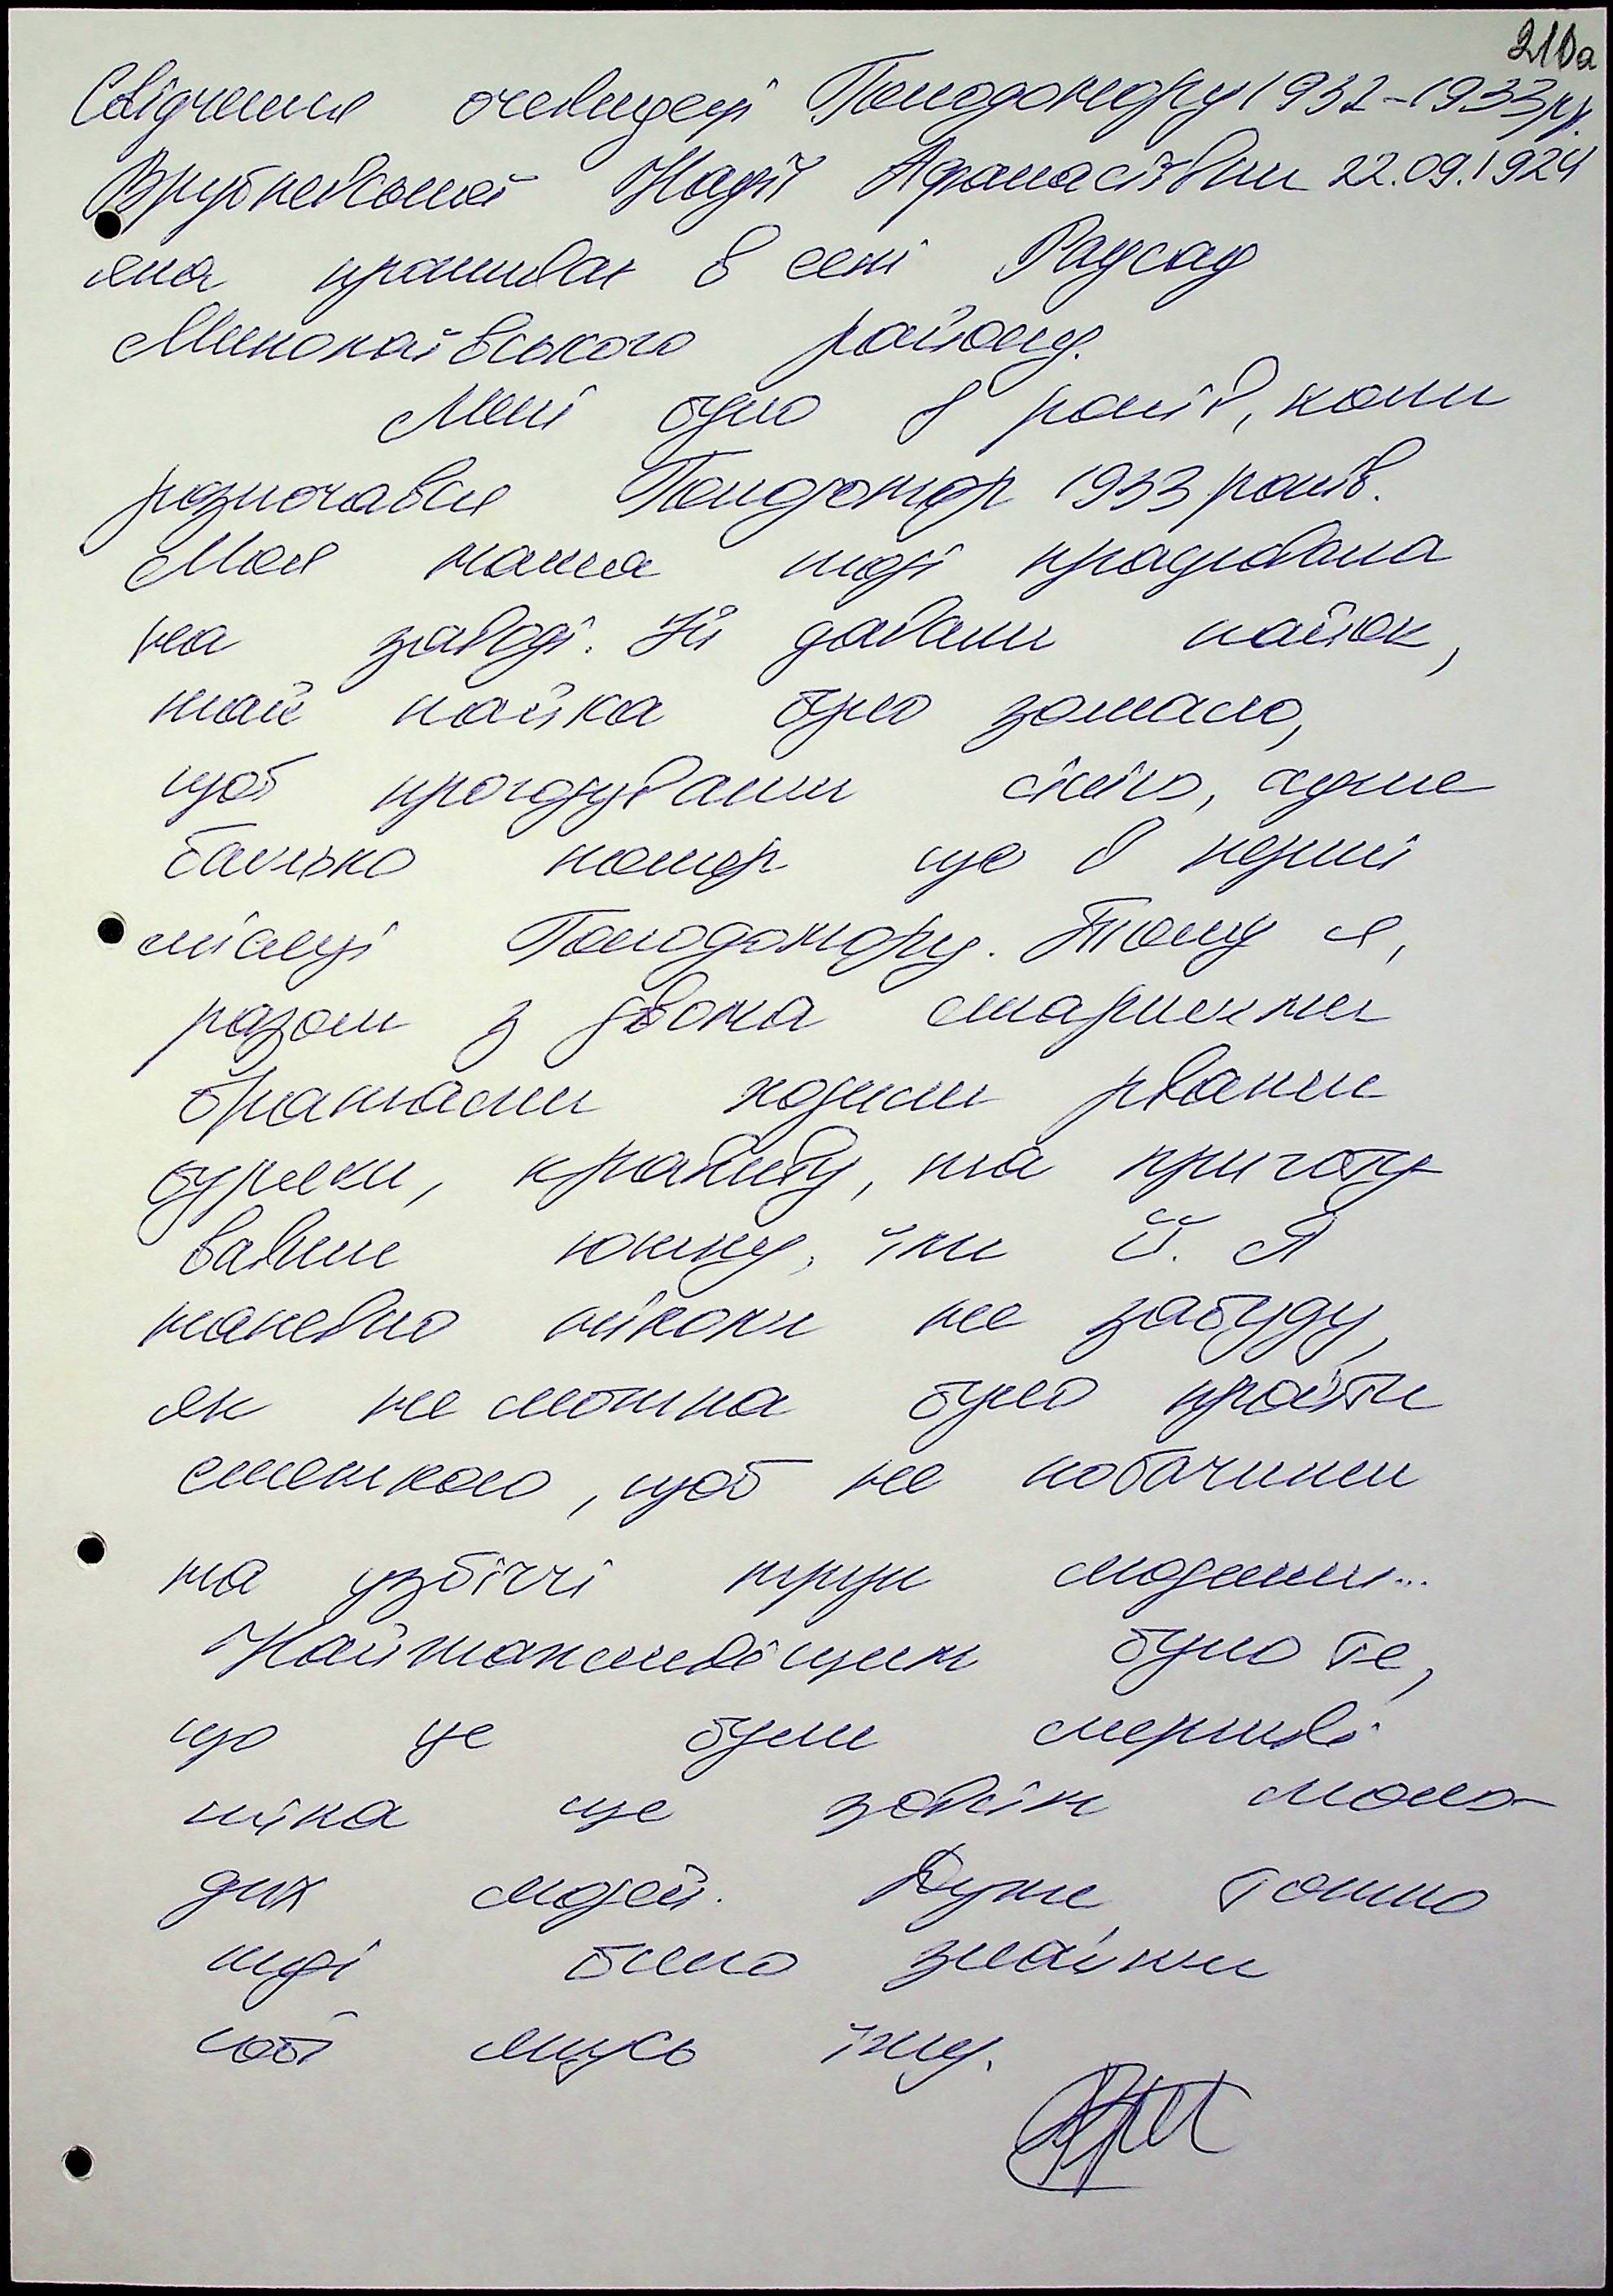 210а
Свідчення очевидеці Голодомору 1932-1933рр.
Врублевської Надії Афанасіївни 22.09.1924
яка проживає в селі Радсад
Миколаївського району.
Мені було 8 років, коли
розпочався Голодомор 1933 років.
Моя мама тоді працювала
на заводі. Їй давали пайок,
того пайка було замало,
щоб прогодувати сім'ю, адже
батько помер ще в перші
місяці Голодомору. Тому я,
разом з двома старшими
братами ходили рвати
буряки, кропиву, та приготу-
вавши южку, їли її. Я
напевно ніколи не забуду,
як не можна було пройти
стежкою, щоб не побачити
на узбіччі трупи людини...
Найжахливішим було те,
що це були мертві
тіла ще зовсім моло-
дих людей. Дуже тяжко
тоді було знайти
собі якусь їжу.